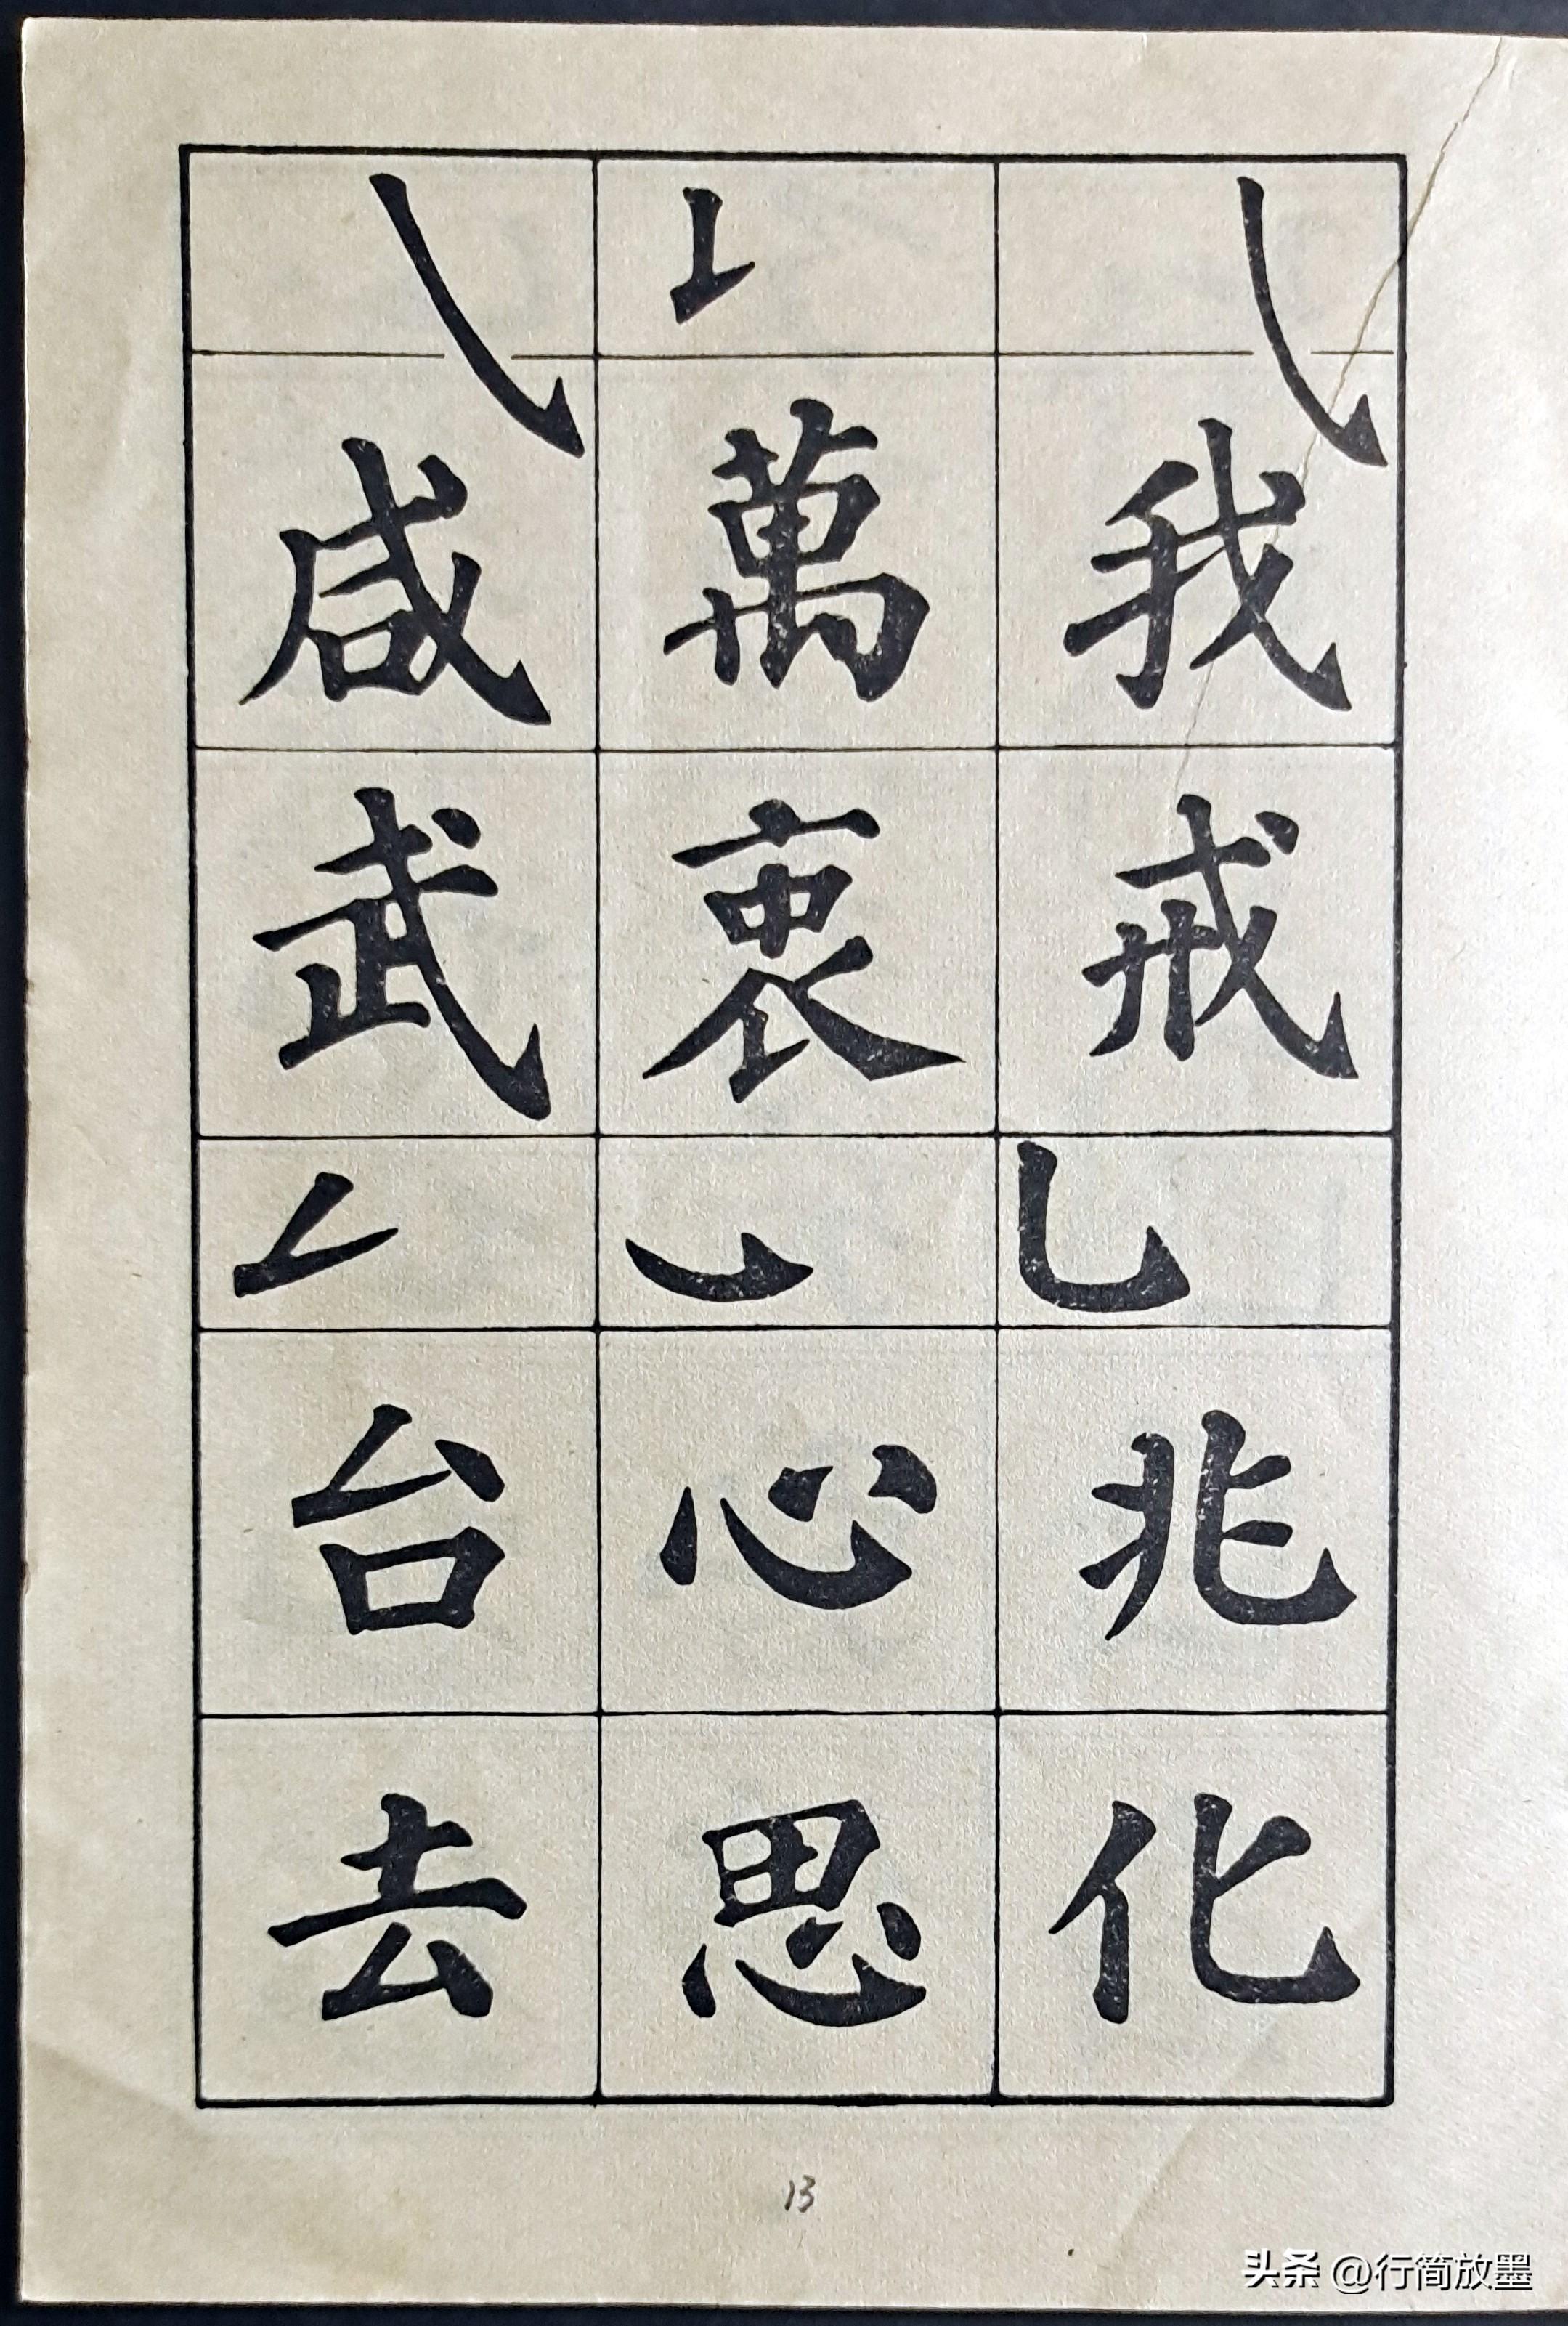 我戒兆化
萬衷心思
咸武台去
13
头条 @行简放墨